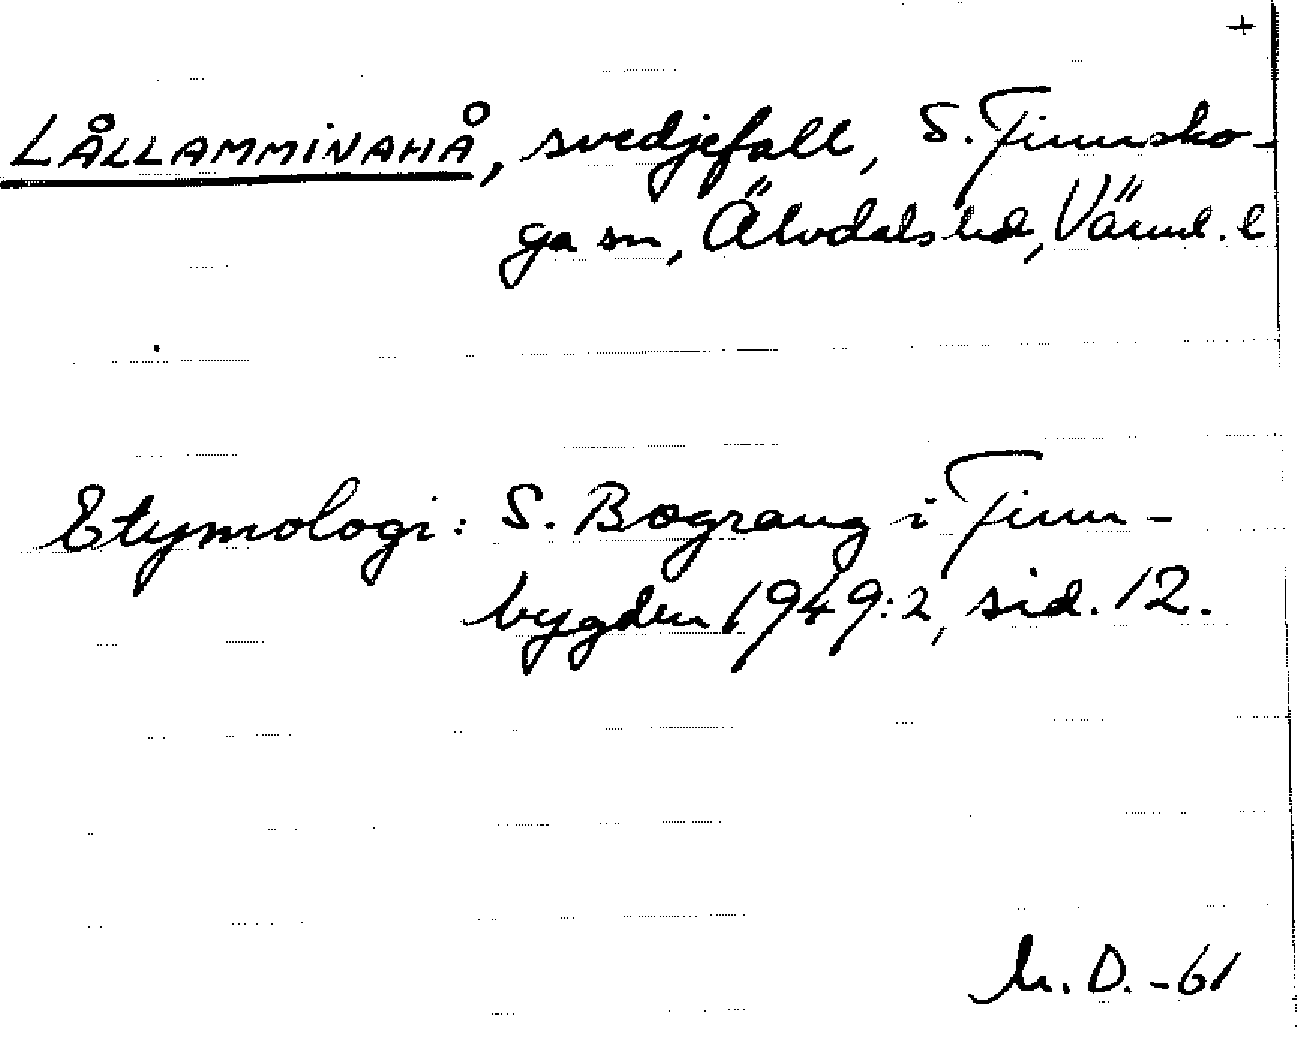 +
LÅLLAMMINAHÅ, svedjefall, S. Finnsko-
ga sn, Älvdals hd, Värml. l
Etymologi: S. Bograng i Finn-
bygden 1949:2, sid. 12.
M.D. -61